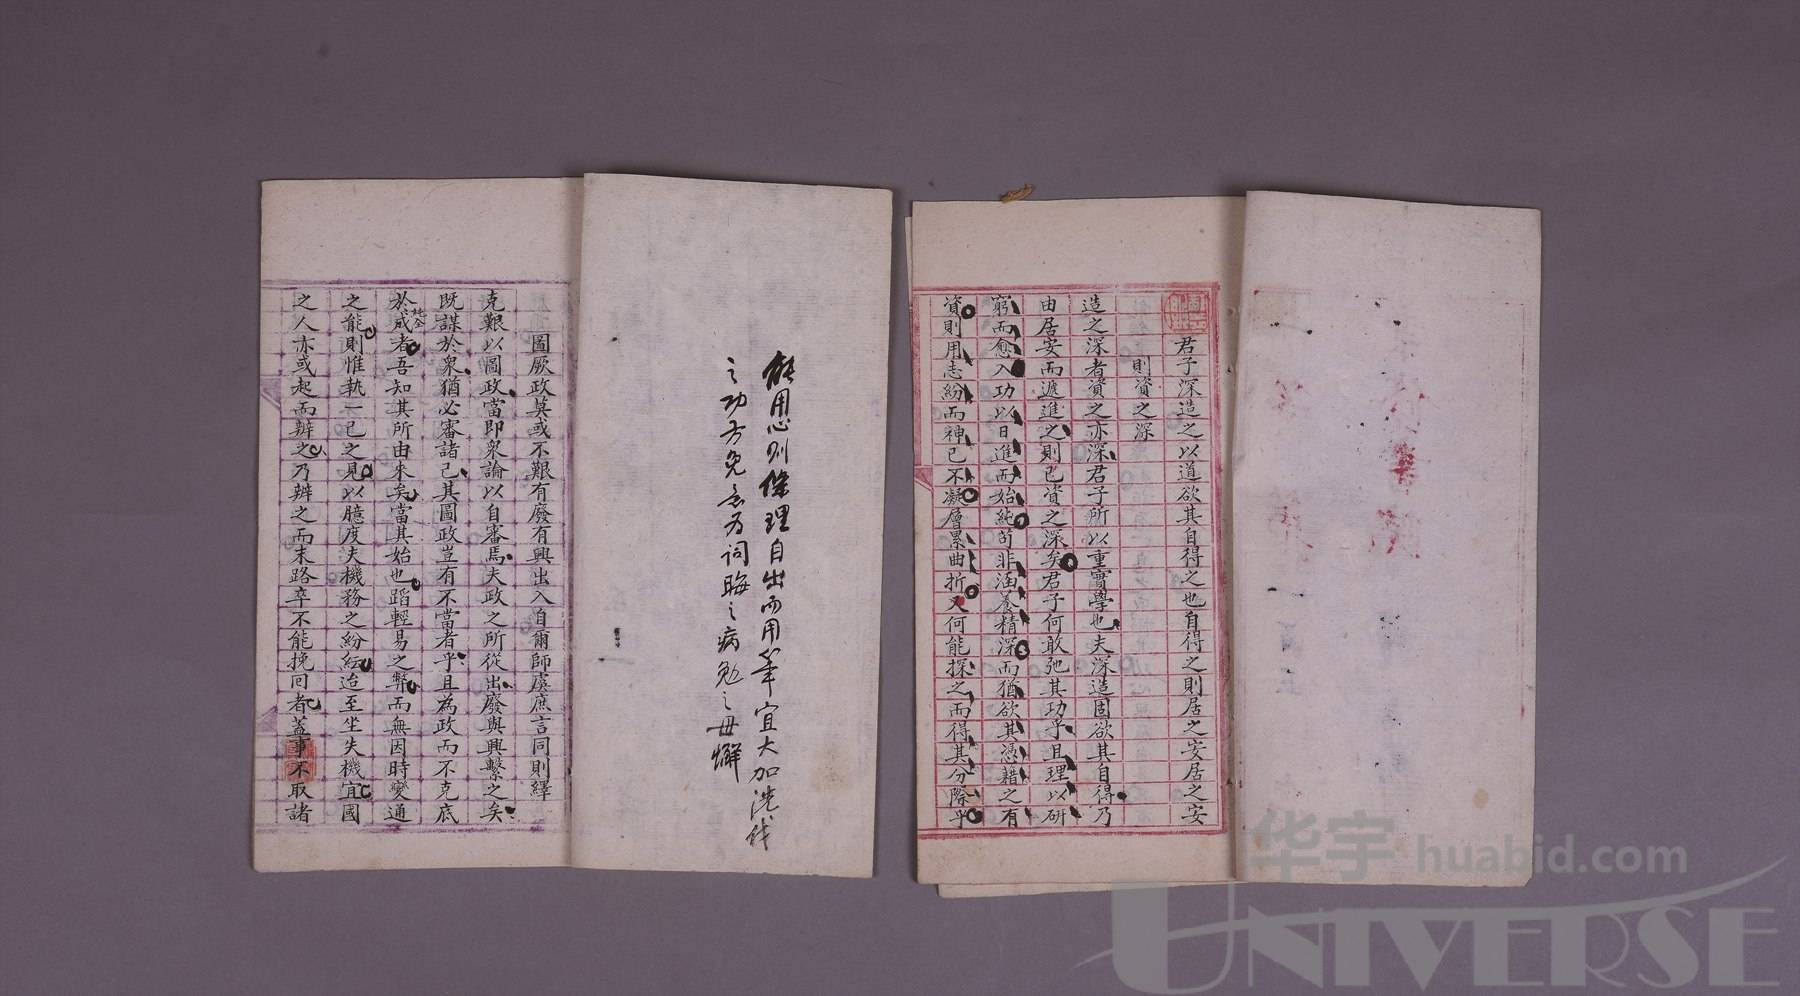 君子深造之以道欲其自得之也自得之則居之安居之安
則資之深
造之深者資之亦深君子所以重實學也夫深造固欲其自得乃
由居安而遞進之則已資之深矣君子何敢弛其功乎且理以研
窮而愈入功以日進而始純苟非涵養精深而猶欲其憑藉之有
資則用志紛而神已不凝層累曲折又何能探之而得其分際乎
能用心則條理自出而用筆宜大加洗伐
之功方免意為詞晦之病勉之毋懈
圖厥政莫或不艱有廢有興出入自爾師虞庶言同則繹
克艱以圖政當即衆論以自審焉夫政之所從出廢與興繫之矣
既謀於衆猶必審諸己其圖政豈有不當者乎且為政而不克底
於咸者吾知其所由来矣當其始也蹈輕易之弊而無因時變通
之能則惟執一己之見以臆度夫機務之紛紜迨至坐失機宜國
之人亦或起而辨之乃辨之而末路卒不能挽回者蓋事不取諸
华宇 huabid.com
UNIVERSE